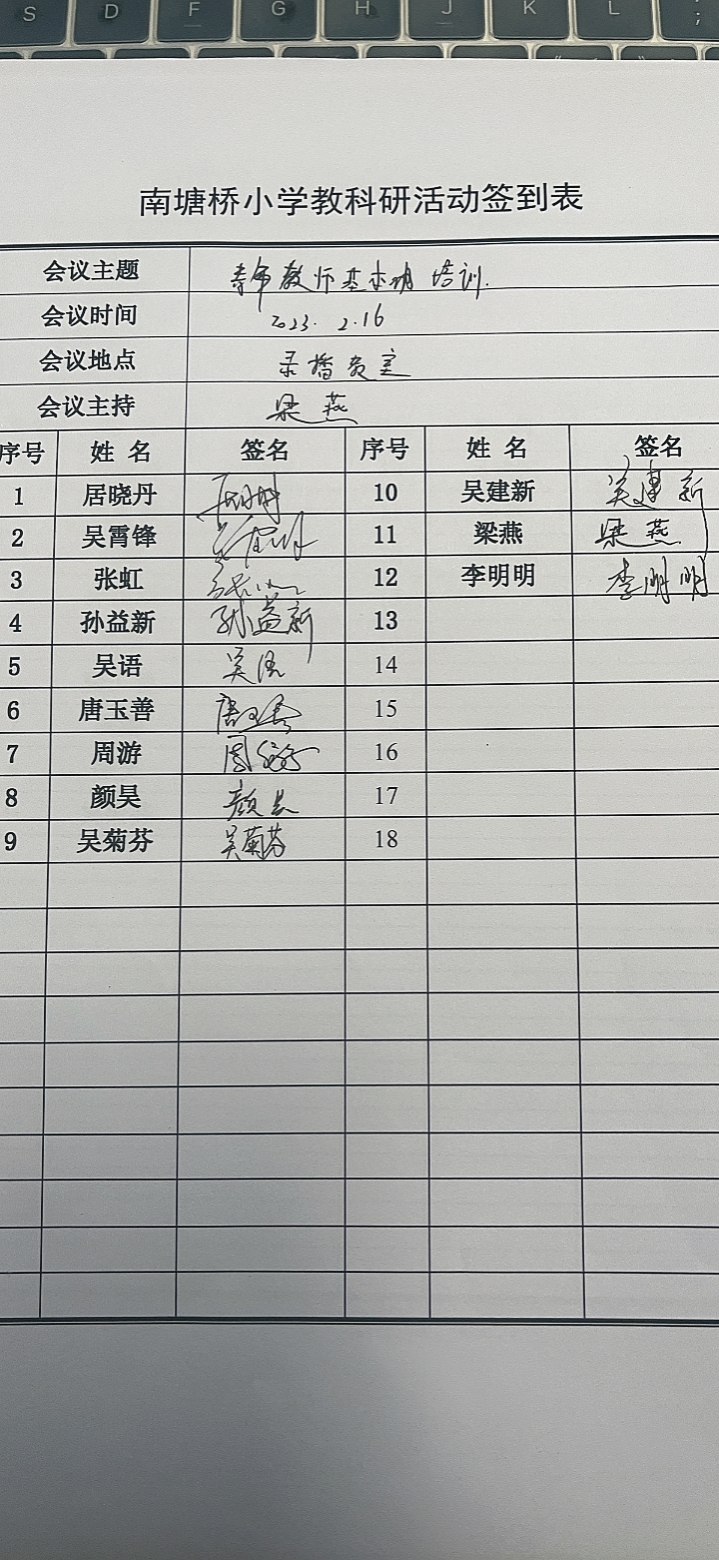 S D F G H J K L ;
南塘桥小学教科研活动签到表
会议主题 教师基本功培训.
会议时间 2023. 2.16
会议地点 录播教室
会议主持 梁燕
序号 姓 名 签名 序号 姓 名 签名
1 居晓丹 10 吴建新 吴建新
2 吴霄锋 11 梁燕 梁燕
3 张虹 张虹 12 李明明 李明明
4 孙益新 孙益新 13
5 吴语 吴语 14
6 唐玉善 唐玉善 15
7 周游 周游 16
8 颜昊 颜昊 17
9 吴菊芬 吴菊芬 18